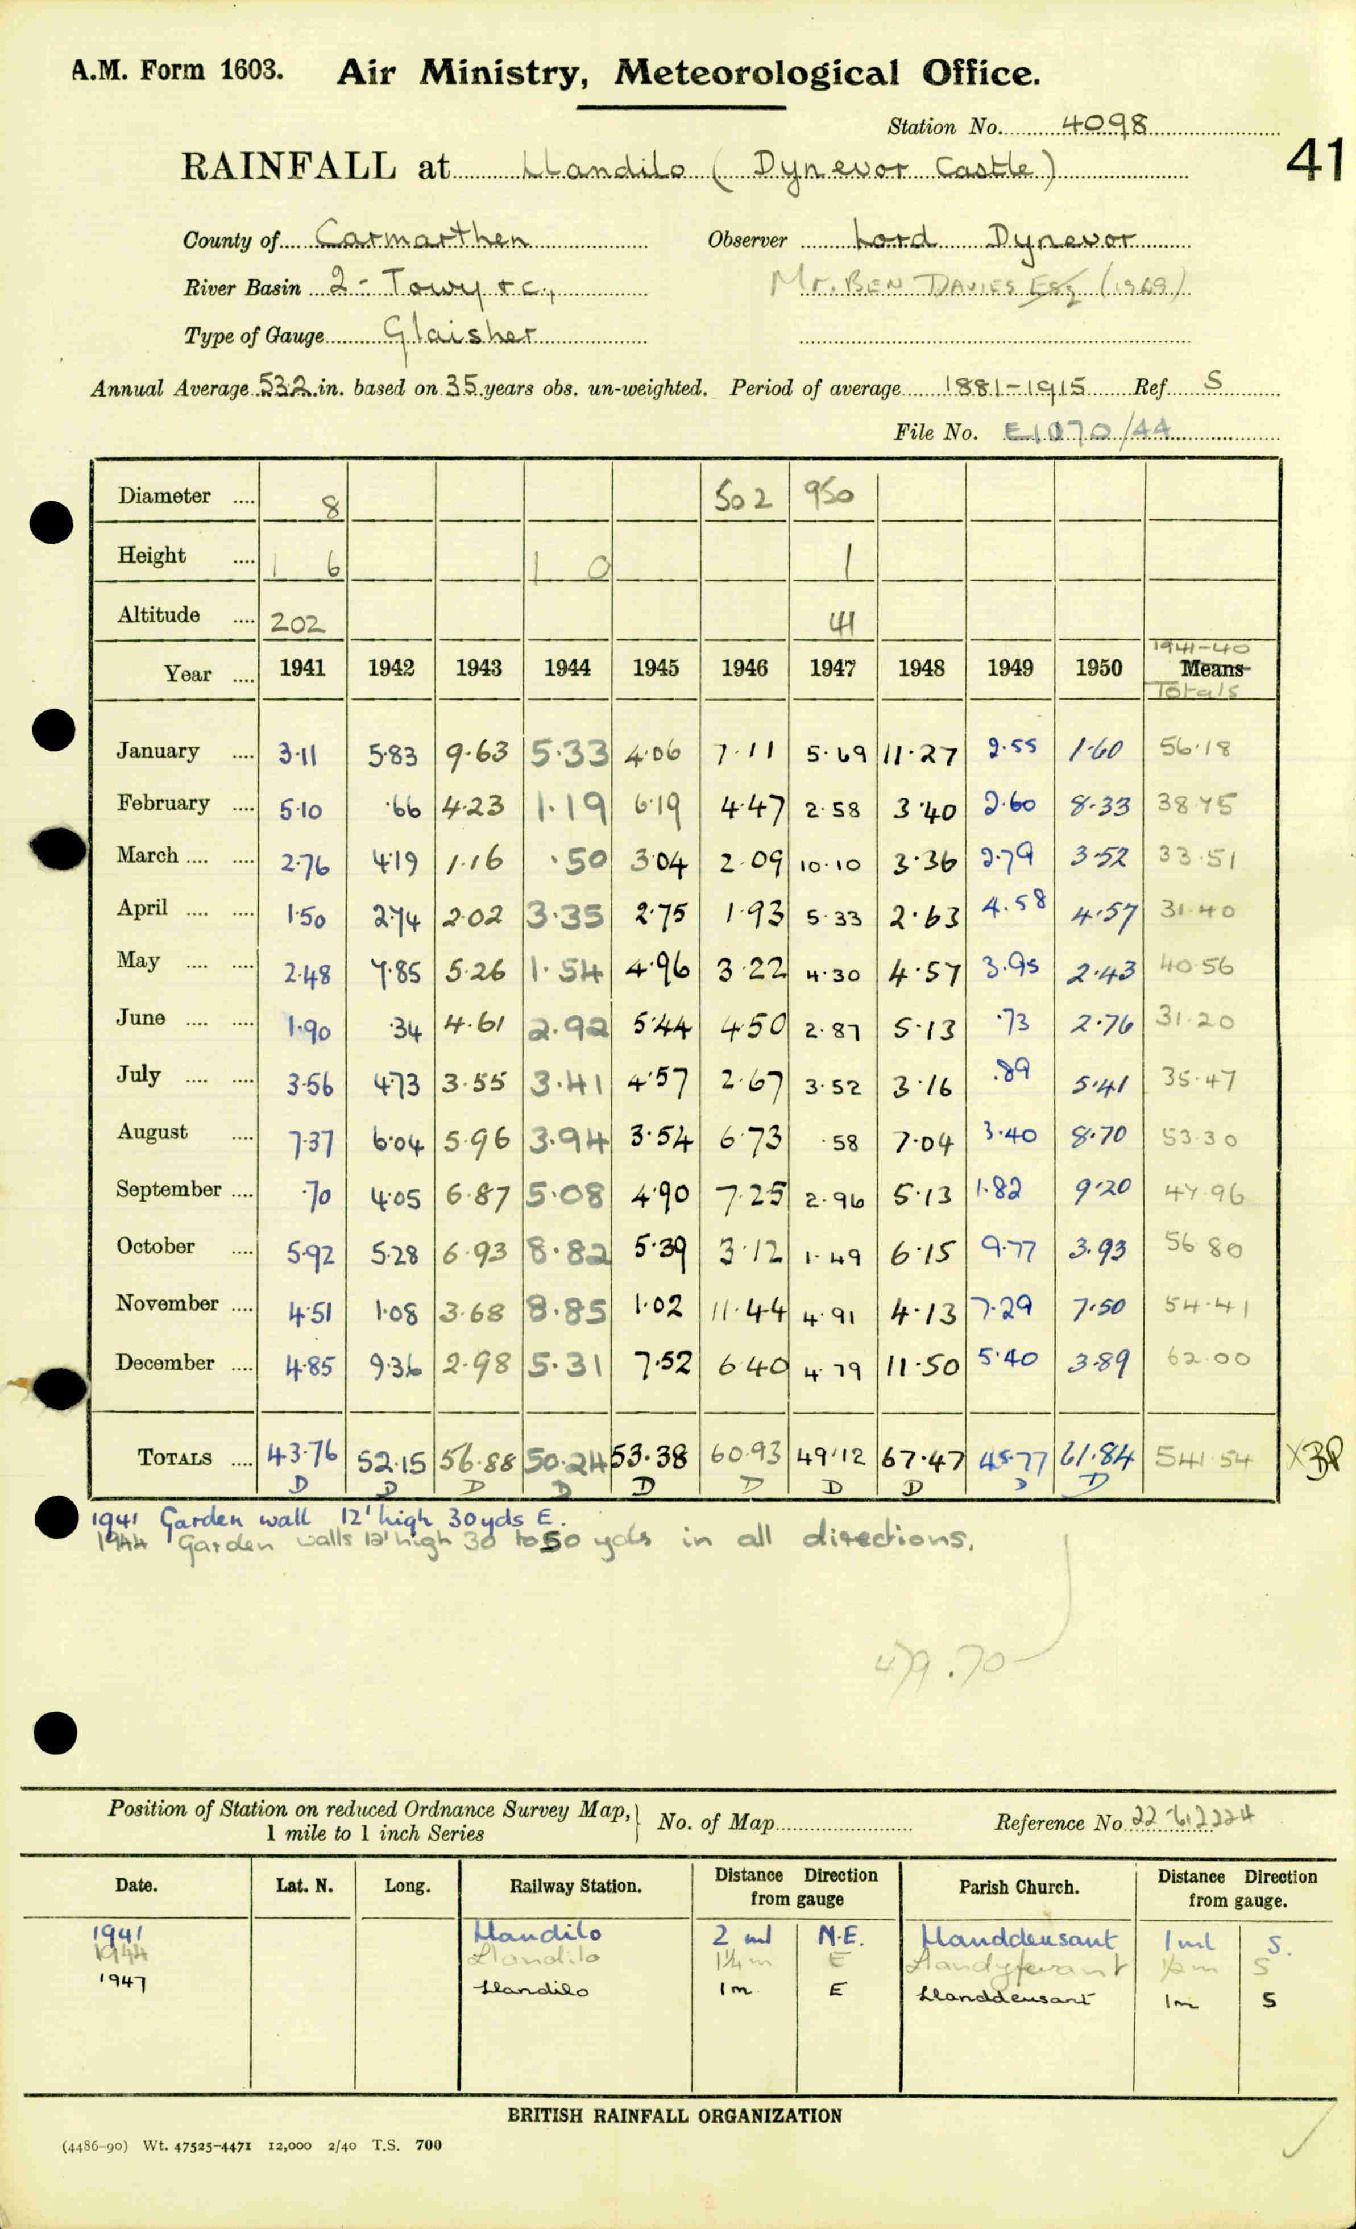 A.M. Form 1603. Air Ministry, Meteorological Office.
Station No. 4098
41
RAINFALL at Llandilo (Dynevor Castle)
County of Carmarthen Observer Lord Dynevor
River Basin 2 - Towy &c., Mr. BEN DAVIES Esq (1949)
Type of Gauge Glaisher
Annual Average 53.2 in. based on 35 years obs. un-weighted. Period of average 1881-1915 Ref. S
File No. E1070/44
Diameter .... 8 502 950
Height .... 1 6 1 0 1
Altitude .... 202 41
1941-40
Year .... 1941 1942 1943 1944 1945 1946 1947 1948 1949 1950 Means
Totals
January .... 3.11 5.83 9.63 5.33 4.06 7.11 5.69 11.27 2.55 1.60 56.18
February .... 5.10 .66 4.23 1.19 6.19 4.47 2.58 3.40 2.60 8.33 38.75
March .... .... 2.76 4.19 1.16 .50 3.04 2.09 10.10 3.36 2.79 3.52 33.51
April .... .... 1.50 2.74 2.02 3.35 2.75 1.93 5.33 2.63 4.58 4.57 31.40
May .... .... 2.48 7.85 5.26 1.54 4.96 3.22 4.30 4.57 3.95 2.43 40.56
June .... .... 1.90 .34 4.61 2.92 5.44 4.50 2.87 5.13 .73 2.76 31.20
July .... .... 3.56 4.73 3.55 3.41 4.57 2.67 3.52 3.16 .89 5.41 35.47
August .... 7.37 6.04 5.96 3.94 3.54 6.73 .58 7.04 3.40 8.70 53.30
September .... .70 4.05 6.87 5.08 4.90 7.25 2.96 5.13 1.82 9.20 47.96
October .... 5.92 5.28 6.93 8.82 5.39 3.12 1.49 6.15 9.77 3.93 56.80
November .... 4.51 1.08 3.68 8.85 1.02 11.44 4.91 4.13 7.29 7.50 54.41
December .... 4.85 9.36 2.98 5.31 7.52 6.40 4.79 11.50 5.40 3.89 62.00
TOTALS .... 43.76 52.15 56.88 50.24 53.38 60.93 49.12 67.47 45.77 61.84 541.54
D D D D D D D D D D
1941 Garden wall 12' high 30 yds E.
1944 Garden walls 12' high 30 to 50 yds in all directions.
479.70
Position of Station on reduced Ordnance Survey Map, 1 mile to 1 inch Series } No. of Map Reference No 22/612224
Date. Lat. N. Long. Railway Station. Distance Direction from gauge Parish Church. Distance Direction from gauge.
1941 Llandilo 2 ml N.E. Llanddeusant 1 ml S.
1944 Llandilo 1¼ m E ½ m S
1947 Llandilo 1m E Llanddeusant 1m S
BRITISH RAINFALL ORGANIZATION
(4486-90) Wt. 47525-4471 12,000 2/40 T.S. 700